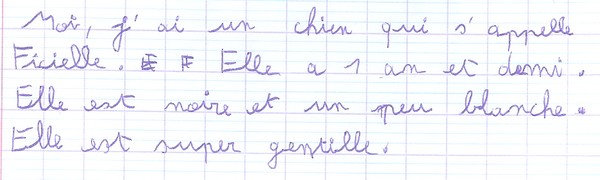 Moi, j'ai un chien qui s'appelle
Ficielle. Elle a 1 an et demi.
Elle est noire et un peu blanche.
Elle est super gentille.